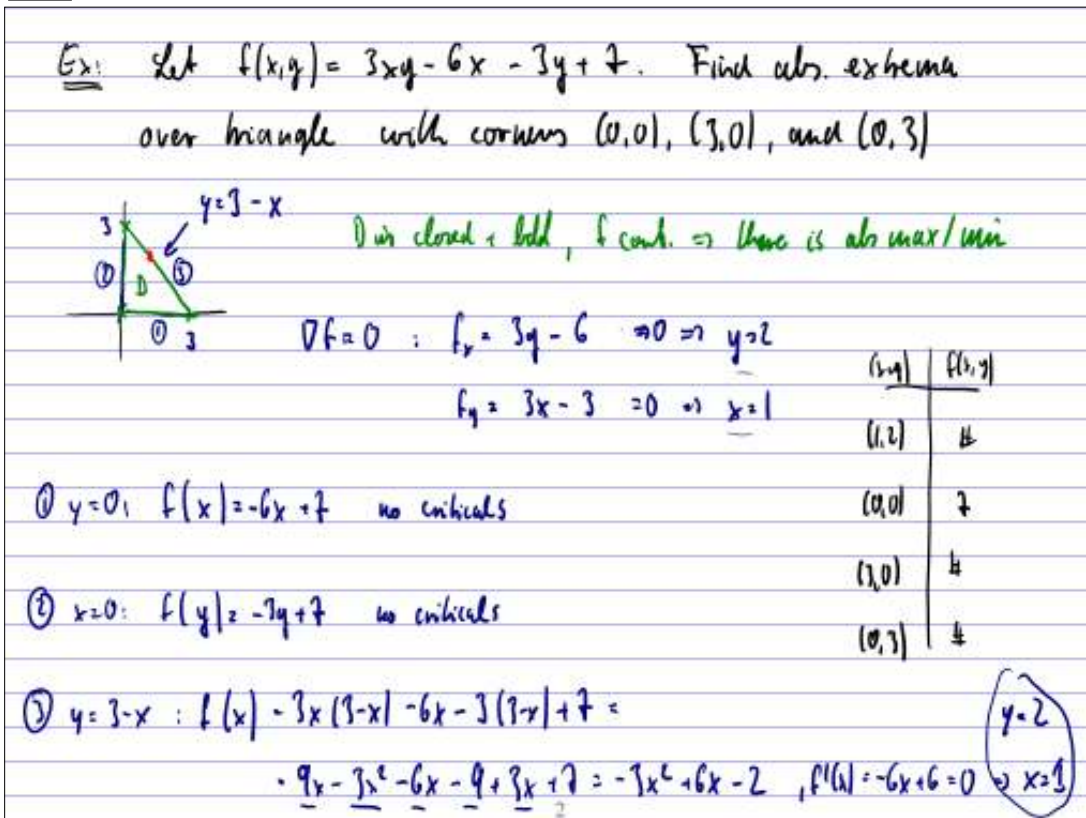 Ex: Let f(x,y) = 3xy - 6x - 3y + 7. Find abs. extrema
over triangle with corners (0,0), (3,0), and (0,3)
y=3-x
3
② D ③
① 3
D is closed + bdd, f cont. => there is abs max/min
∇f=0 : fx = 3y - 6 =0 => y=2
fy = 3x - 3 =0 => x=1
(x,y) | f(x,y)
(1,2) | #
(0,0) | 7
(3,0) | #
(0,3) | #
① y=0: f(x)=-6x+7 no criticals
② x=0: f(y)=-3y+7 no criticals
③ y=3-x : f(x) = 3x(3-x) -6x - 3(3-x)+7 =
= 9x - 3x² - 6x - 9 + 3x + 7 = -3x² +6x - 2 , f'(x) = -6x+6 =0 => x=1
y=2
2